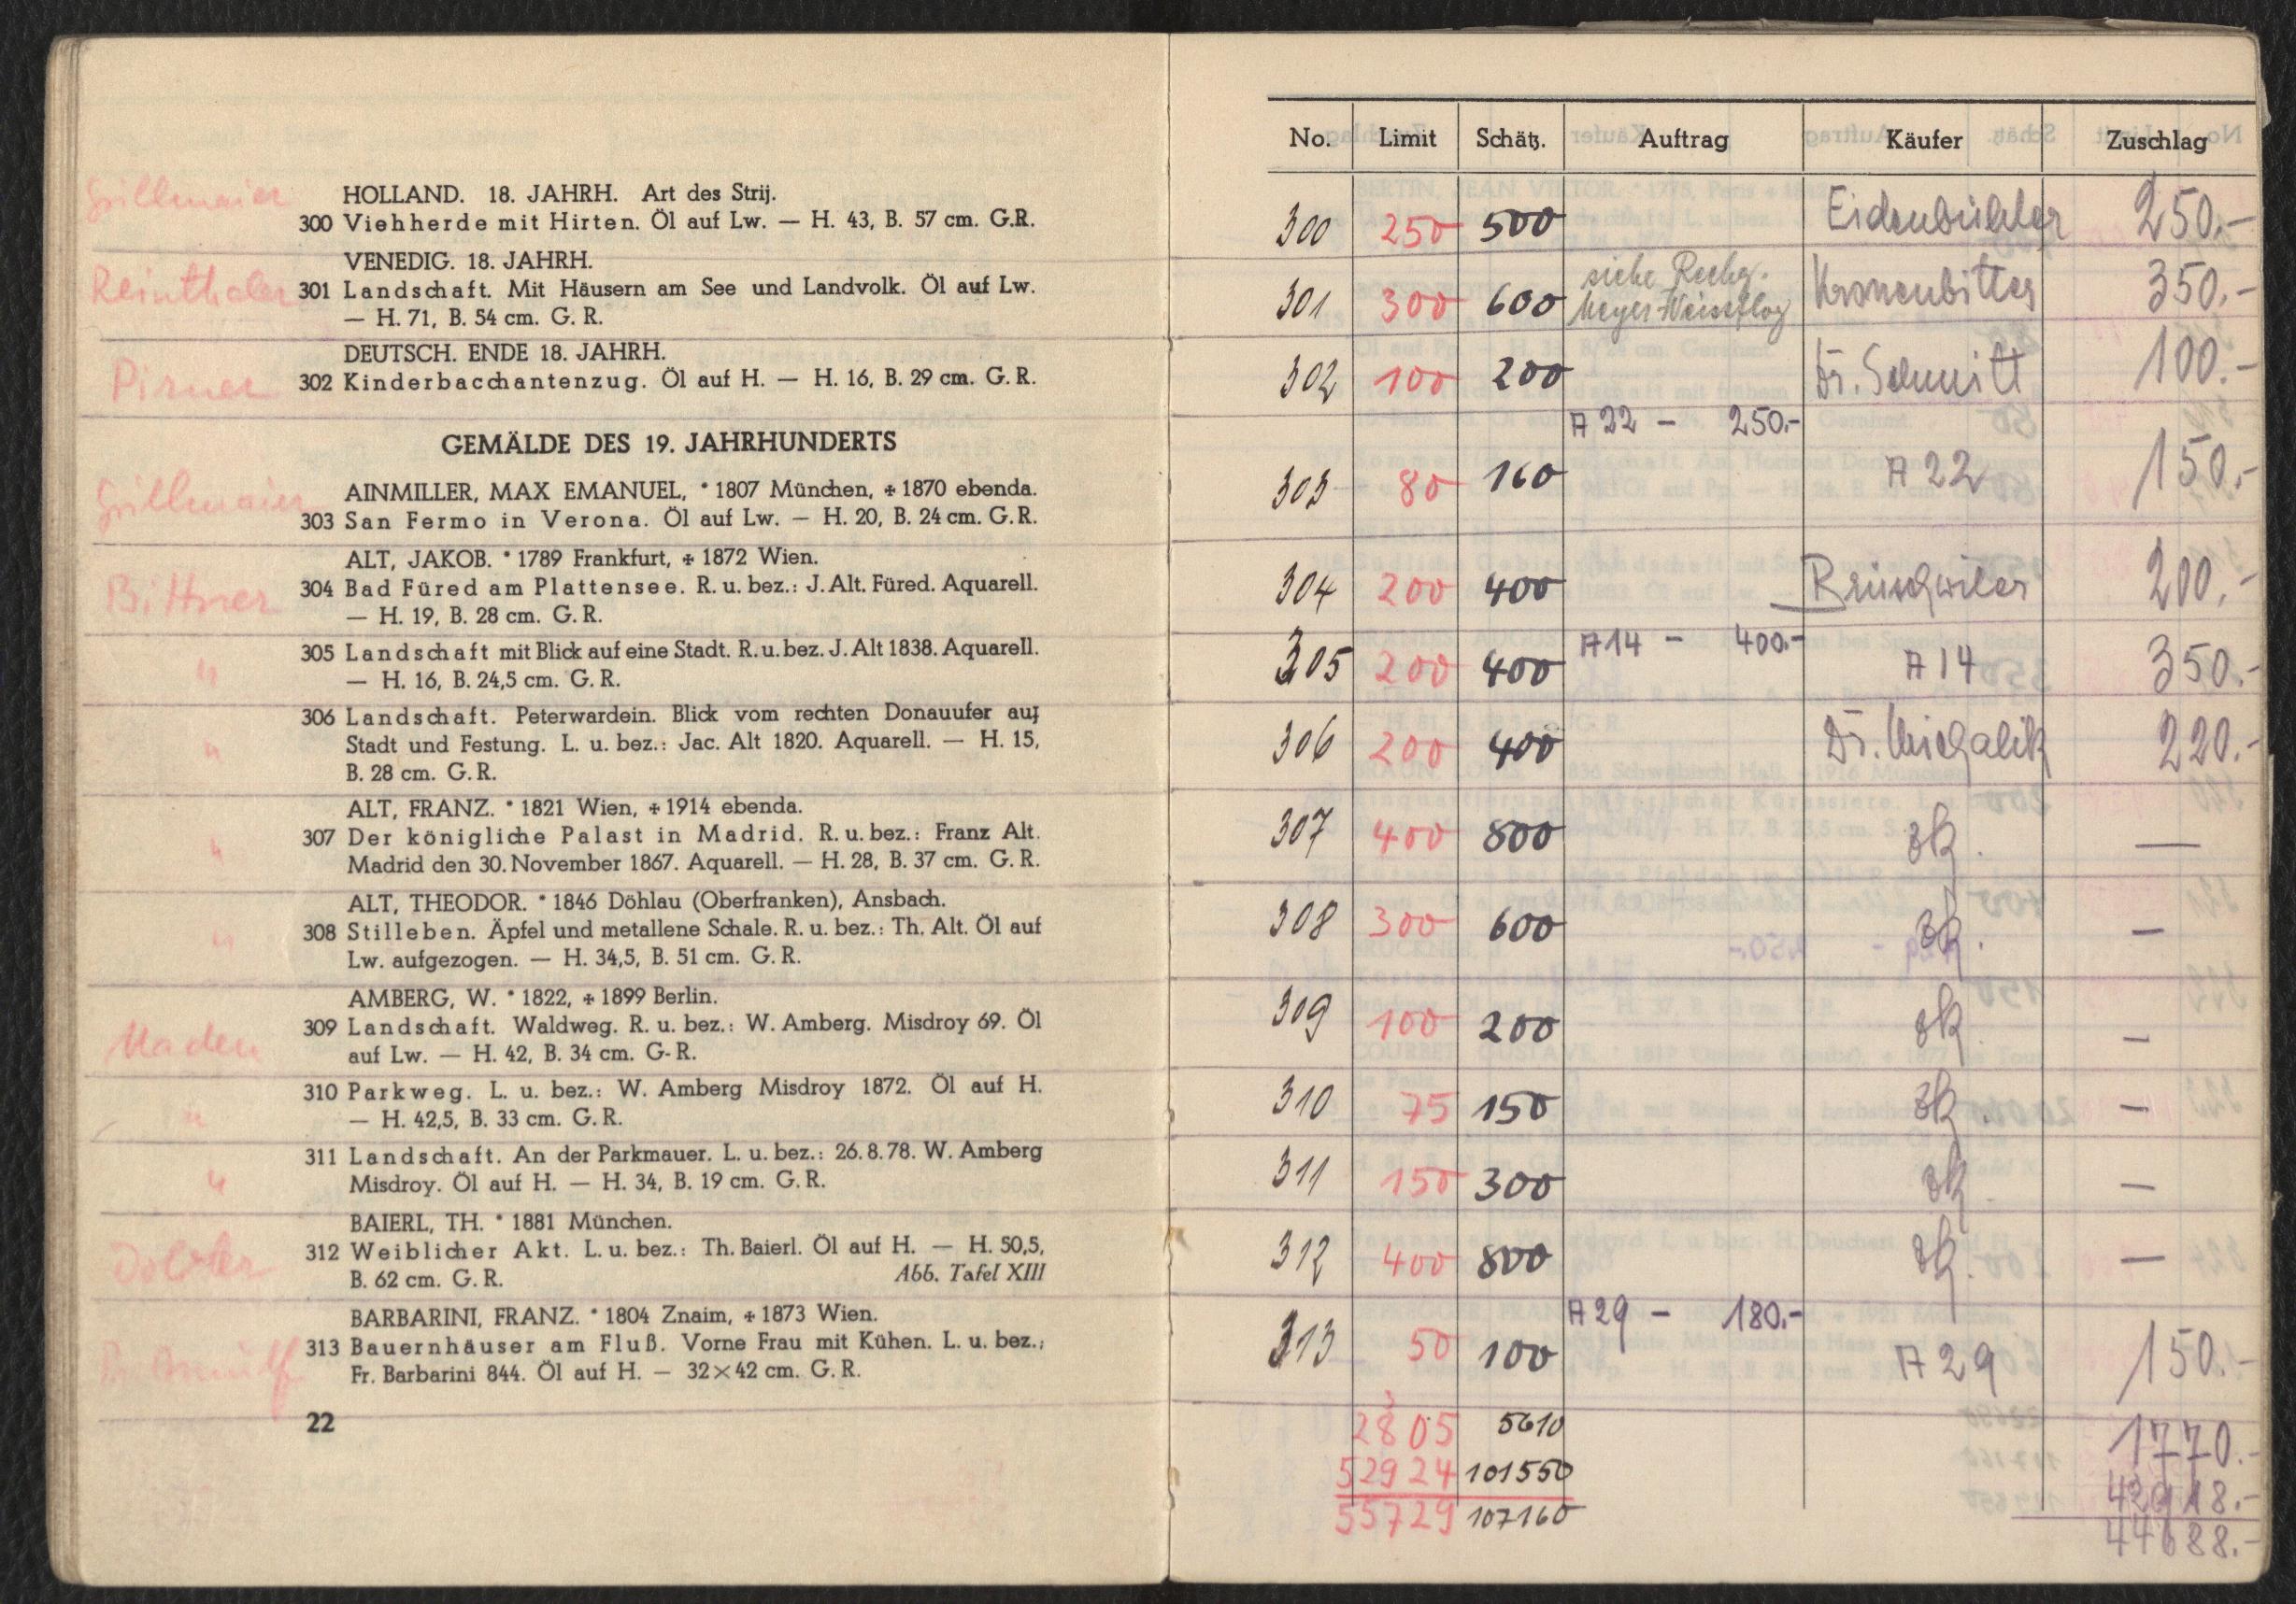 Grillmaier
HOLLAND. 18. JAHRH. Art des Strij.
300 Viehherde mit Hirten. Öl auf Lw. — H. 43, B. 57 cm. G.R.
VENEDIG. 18. JAHRH.
Reinthaler 301 Landschaft. Mit Häusern am See und Landvolk. Öl auf Lw.
— H. 71, B. 54 cm. G. R.
DEUTSCH. ENDE 18. JAHRH.
Pirner 302 Kinderbacchantenzug. Öl auf H. — H. 16, B. 29 cm. G. R.
GEMÄLDE DES 19. JAHRHUNDERTS
Grillmaier
AINMILLER, MAX EMANUEL, * 1807 München, ✠ 1870 ebenda.
303 San Fermo in Verona. Öl auf Lw. — H. 20, B. 24 cm. G. R.
ALT, JAKOB. * 1789 Frankfurt, ✠ 1872 Wien.
Bittner 304 Bad Füred am Plattensee. R. u. bez.: J. Alt. Füred. Aquarell.
— H. 19, B. 28 cm. G. R.
" 305 Landschaft mit Blick auf eine Stadt. R. u. bez. J. Alt 1838. Aquarell.
— H. 16, B. 24,5 cm. G. R.
" 306 Landschaft. Peterwardein. Blick vom rechten Donauufer auf
Stadt und Festung. L. u. bez.: Jac. Alt 1820. Aquarell. — H. 15,
B. 28 cm. G. R.
ALT, FRANZ. * 1821 Wien, ✠ 1914 ebenda.
" 307 Der königliche Palast in Madrid. R. u. bez.: Franz Alt.
Madrid den 30. November 1867. Aquarell. — H. 28, B. 37 cm. G. R.
ALT, THEODOR. * 1846 Döhlau (Oberfranken), Ansbach.
" 308 Stilleben. Äpfel und metallene Schale. R. u. bez.: Th. Alt. Öl auf
Lw. aufgezogen. — H. 34,5, B. 51 cm. G. R.
AMBERG, W. * 1822, ✠ 1899 Berlin.
Maden 309 Landschaft. Waldweg. R. u. bez.: W. Amberg. Misdroy 69. Öl
auf Lw. — H. 42, B. 34 cm. G- R.
" 310 Parkweg. L. u. bez.: W. Amberg Misdroy 1872. Öl auf H.
— H. 42,5, B. 33 cm. G. R.
" 311 Landschaft. An der Parkmauer. L. u. bez.: 26. 8. 78. W. Amberg
Misdroy. Öl auf H. — H. 34, B. 19 cm. G. R.
BAIERL, TH. * 1881 München.
312 Weiblicher Akt. L. u. bez.: Th. Baierl. Öl auf H. — H. 50,5,
B. 62 cm. G. R. Abb. Tafel XIII
BARBARINI, FRANZ. * 1804 Znaim, ✠ 1873 Wien.
313 Bauernhäuser am Fluß. Vorne Frau mit Kühen. L. u. bez.:
Fr. Barbarini 844. Öl auf H. — 32×42 cm. G. R.
22
No. Limit Schätz. Auftrag Käufer Zuschlag
300 250 500 Eidenbichler 250.-
siehe Rechg.
301 300 600 Meyer-Weissflog Kronenbitter 350.-
302 100 200 Dr. Schmitt 100.-
A 22 - 250.-
303 80 160 A 22 150.-
304 200 400 Reuschwiler 200.-
A 14 - 400.-
305 200 400 A 14 350.-
306 200 400 Dr. Michalik 220.-
307 400 800 zk. —
308 300 600 zk. —
309 100 200 zk —
310 75 150 zk. —
311 150 300 zk. —
312 400 800 zk. —
A 29 - 180.-
313 50 100 A 29 150.-
2805 5610 1770.-
52924 101550 42918.-
55729 107160 44688.-